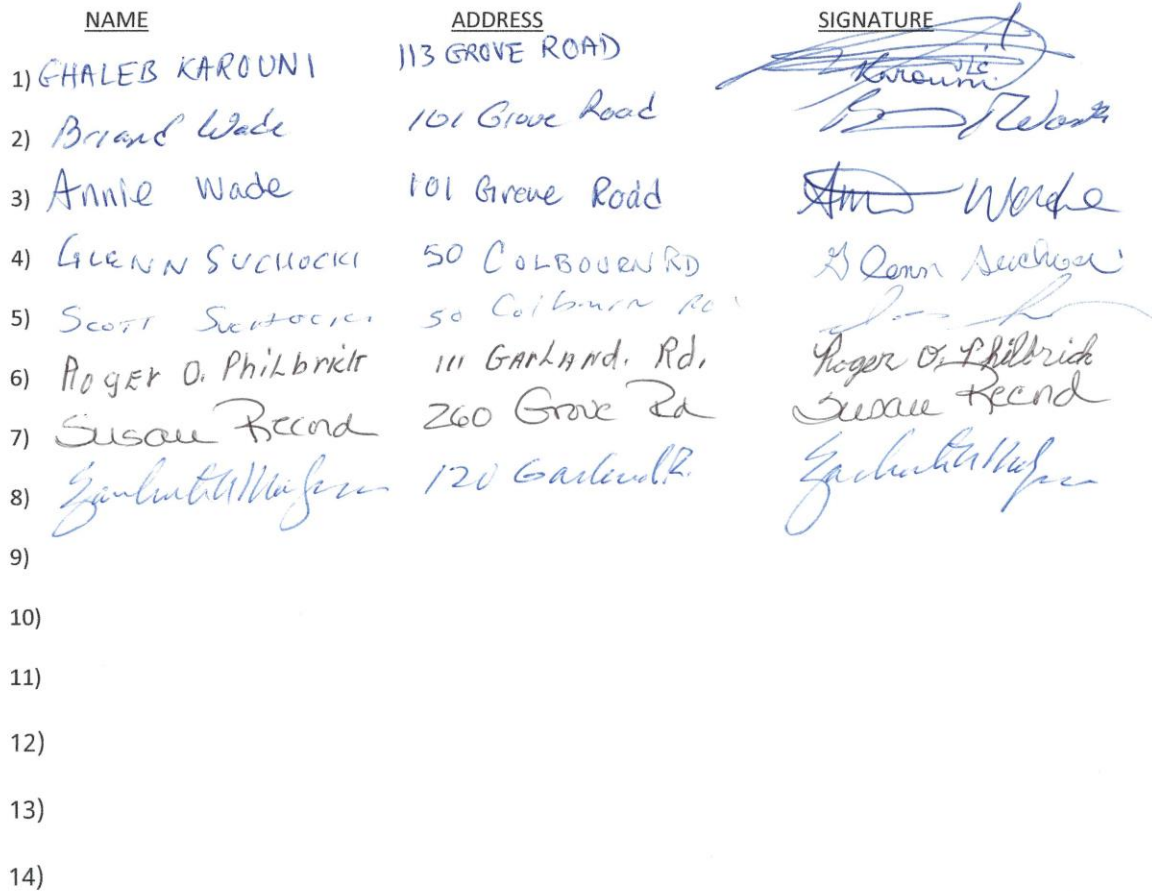 NAME ADDRESS SIGNATURE
1) GHALEB KAROUNI 113 GROVE ROAD Karouni
2) Briand Wade 101 Grove Road
3) Annie Wade 101 Grove Road
4) GLENN SUCHOCKI 50 COLBOURN RD Glenn Suchocki
5) SCOTT SUCHOCKI 50 Colburn Rd
6) Roger O. Philbrick 111 GARLAND. Rd. Roger O. Philbrick
7) Susan Record 260 Grove Rd Susan Record
8) 120 Garland
9)
10)
11)
12)
13)
14)